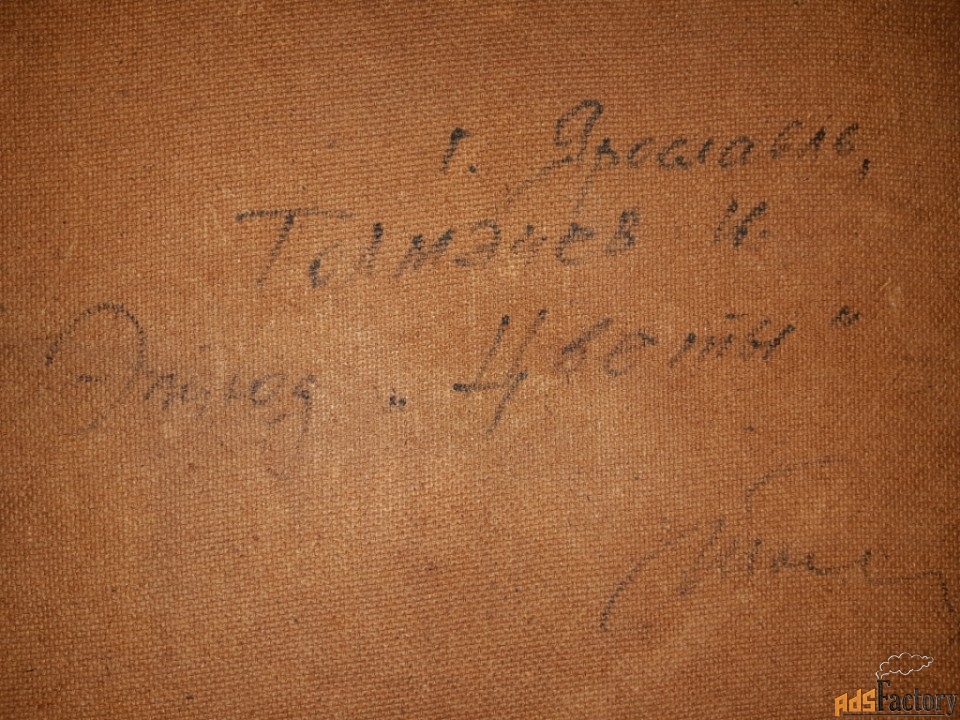 г. Ярославль,
Толмачев Н.
Этюд „Цветы"
AdsFactory